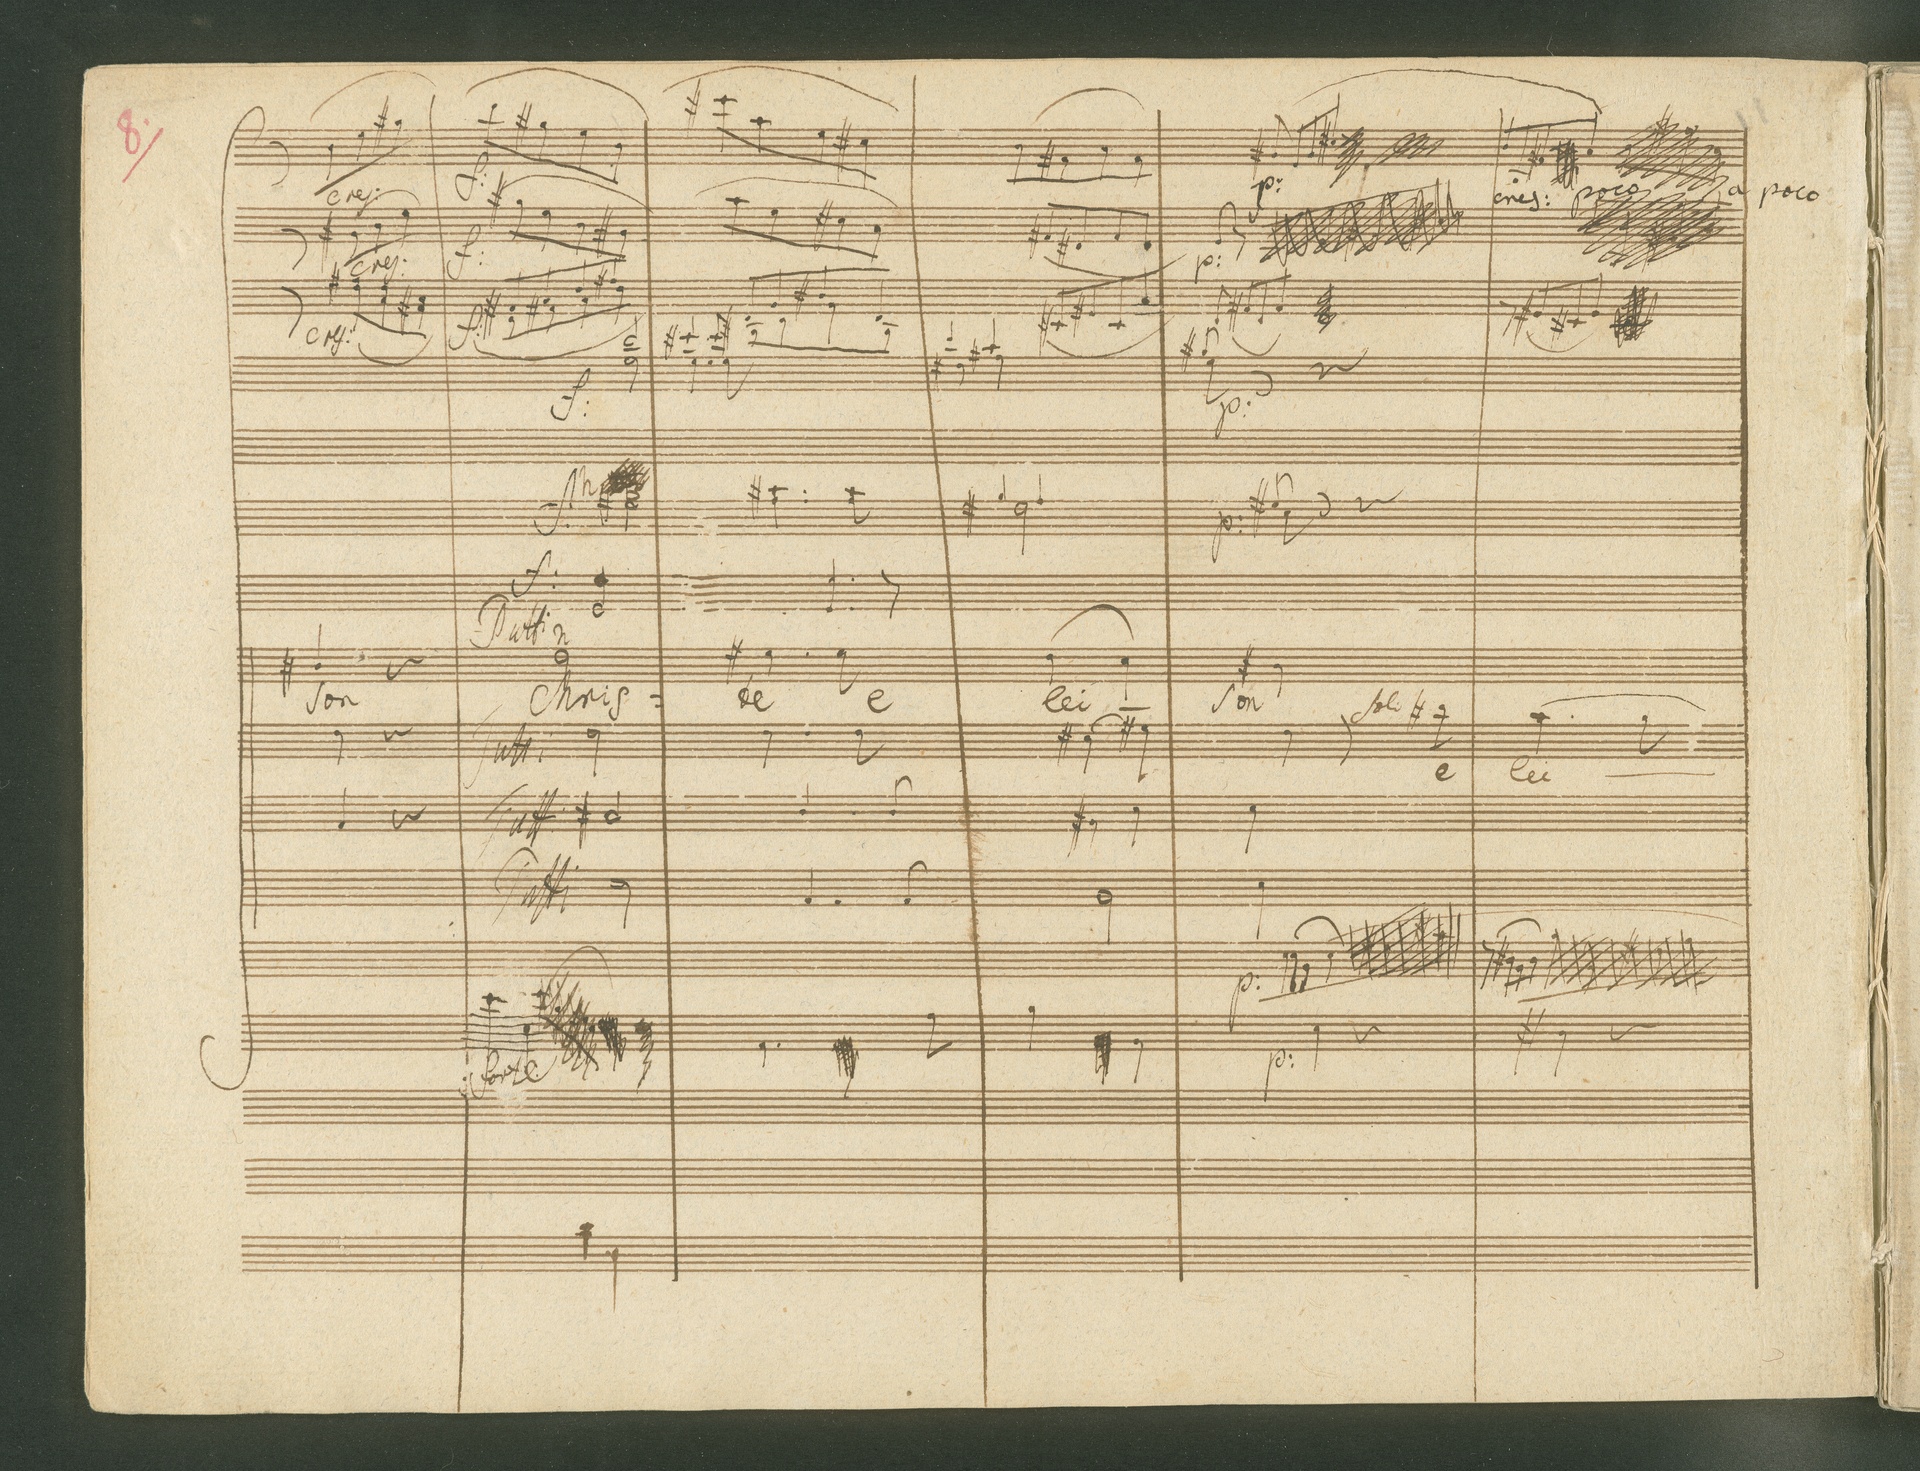 8.
cres:
f:
p:
cres: poco a poco
cres:
f:
p:
cres:
f:
f:
p:
f:
p:
f:
Tutti
son Chris= te e lei son
Soli
Tutti
e lei
Tutti
Tutti
p:
forte
p: